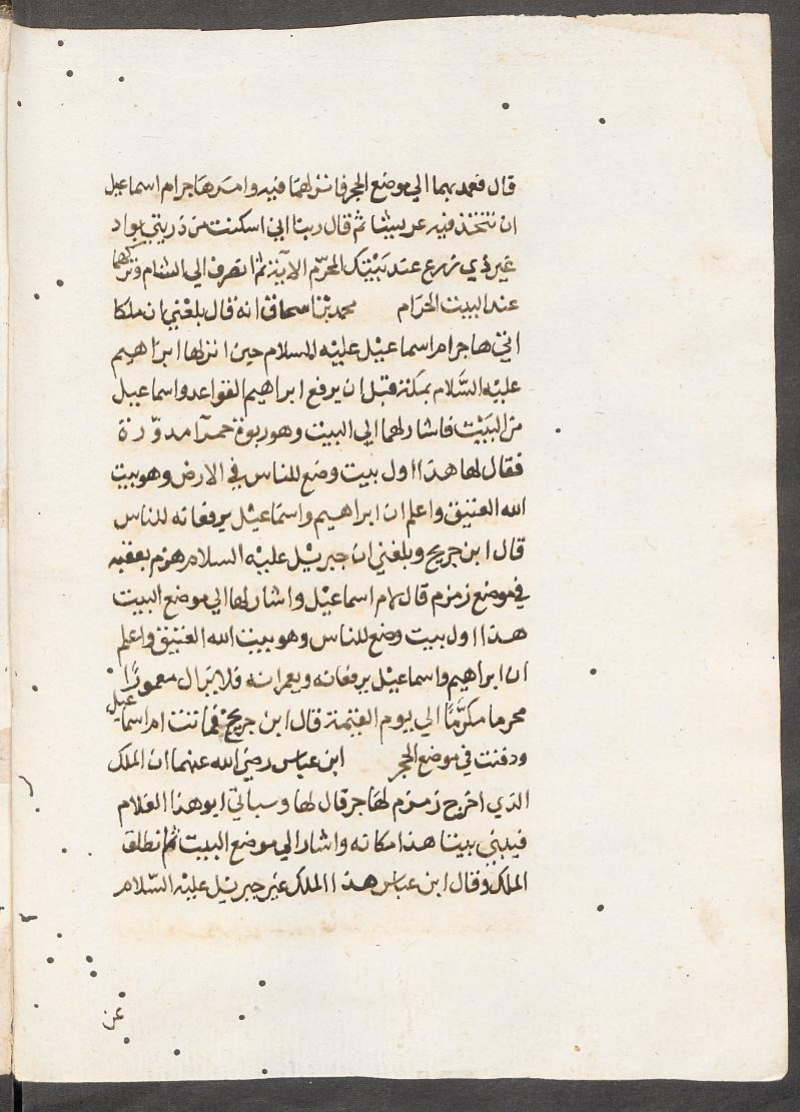 قال فعمد بهما الي موضع الحجر فانزلهما فيه وامر هاجر ام اسماعيل
ان تتخذ فيه عريشا ثم قال ربنا اني اسكنت من ذريتي بواد
غير ذي زرع عند بيتك المحرم الاية ثم انصرف الي الشام وتركهما
عند البيت الحرام محمد بن اسحاق انه قال بلغني ان ملكا
اتي هاجر ام اسماعيل عليه السلام حين انزلها ابراهيم
عليه السلام بمكة قبل ان يرفع ابراهيم القواعد واسماعيل
من البيت فاشار لهما الي البيت وهو ربوة حمرآ مدورة
فقال لها هذا اول بيت وضع للناس في الارض وهو بيت
الله العتيق واعلم ان ابراهيم واسماعيل يرفعانه للناس
قال ابن جريج وبلغني ان جبريل عليه السلام هزم بعقبه
في موضع زمزم قال لام اسماعيل واشار لها الي موضع البيت
هذا اول بيت وضع للناس وهو بيت الله العتيق واعلم
ان ابراهيم واسماعيل يرفعانه ويعمرانه فلا يزال معمورًا
محرما مكرّمًا الي يوم القيمة قال ابن جريج فماتت ام اسماعيل
ودفنت في موضع الحجر ابن عباس رضي الله عنهما ان الملك
الذي اخرج زمزم لهاجر قال لها وسياتي ابو هذا الغلام
فيبني بيتا هذا مكانه واشار الي موضع البيت ثم انطلق
الملك وقال ابن عباس هذا الملك غير جبريل عليه السلام
عن